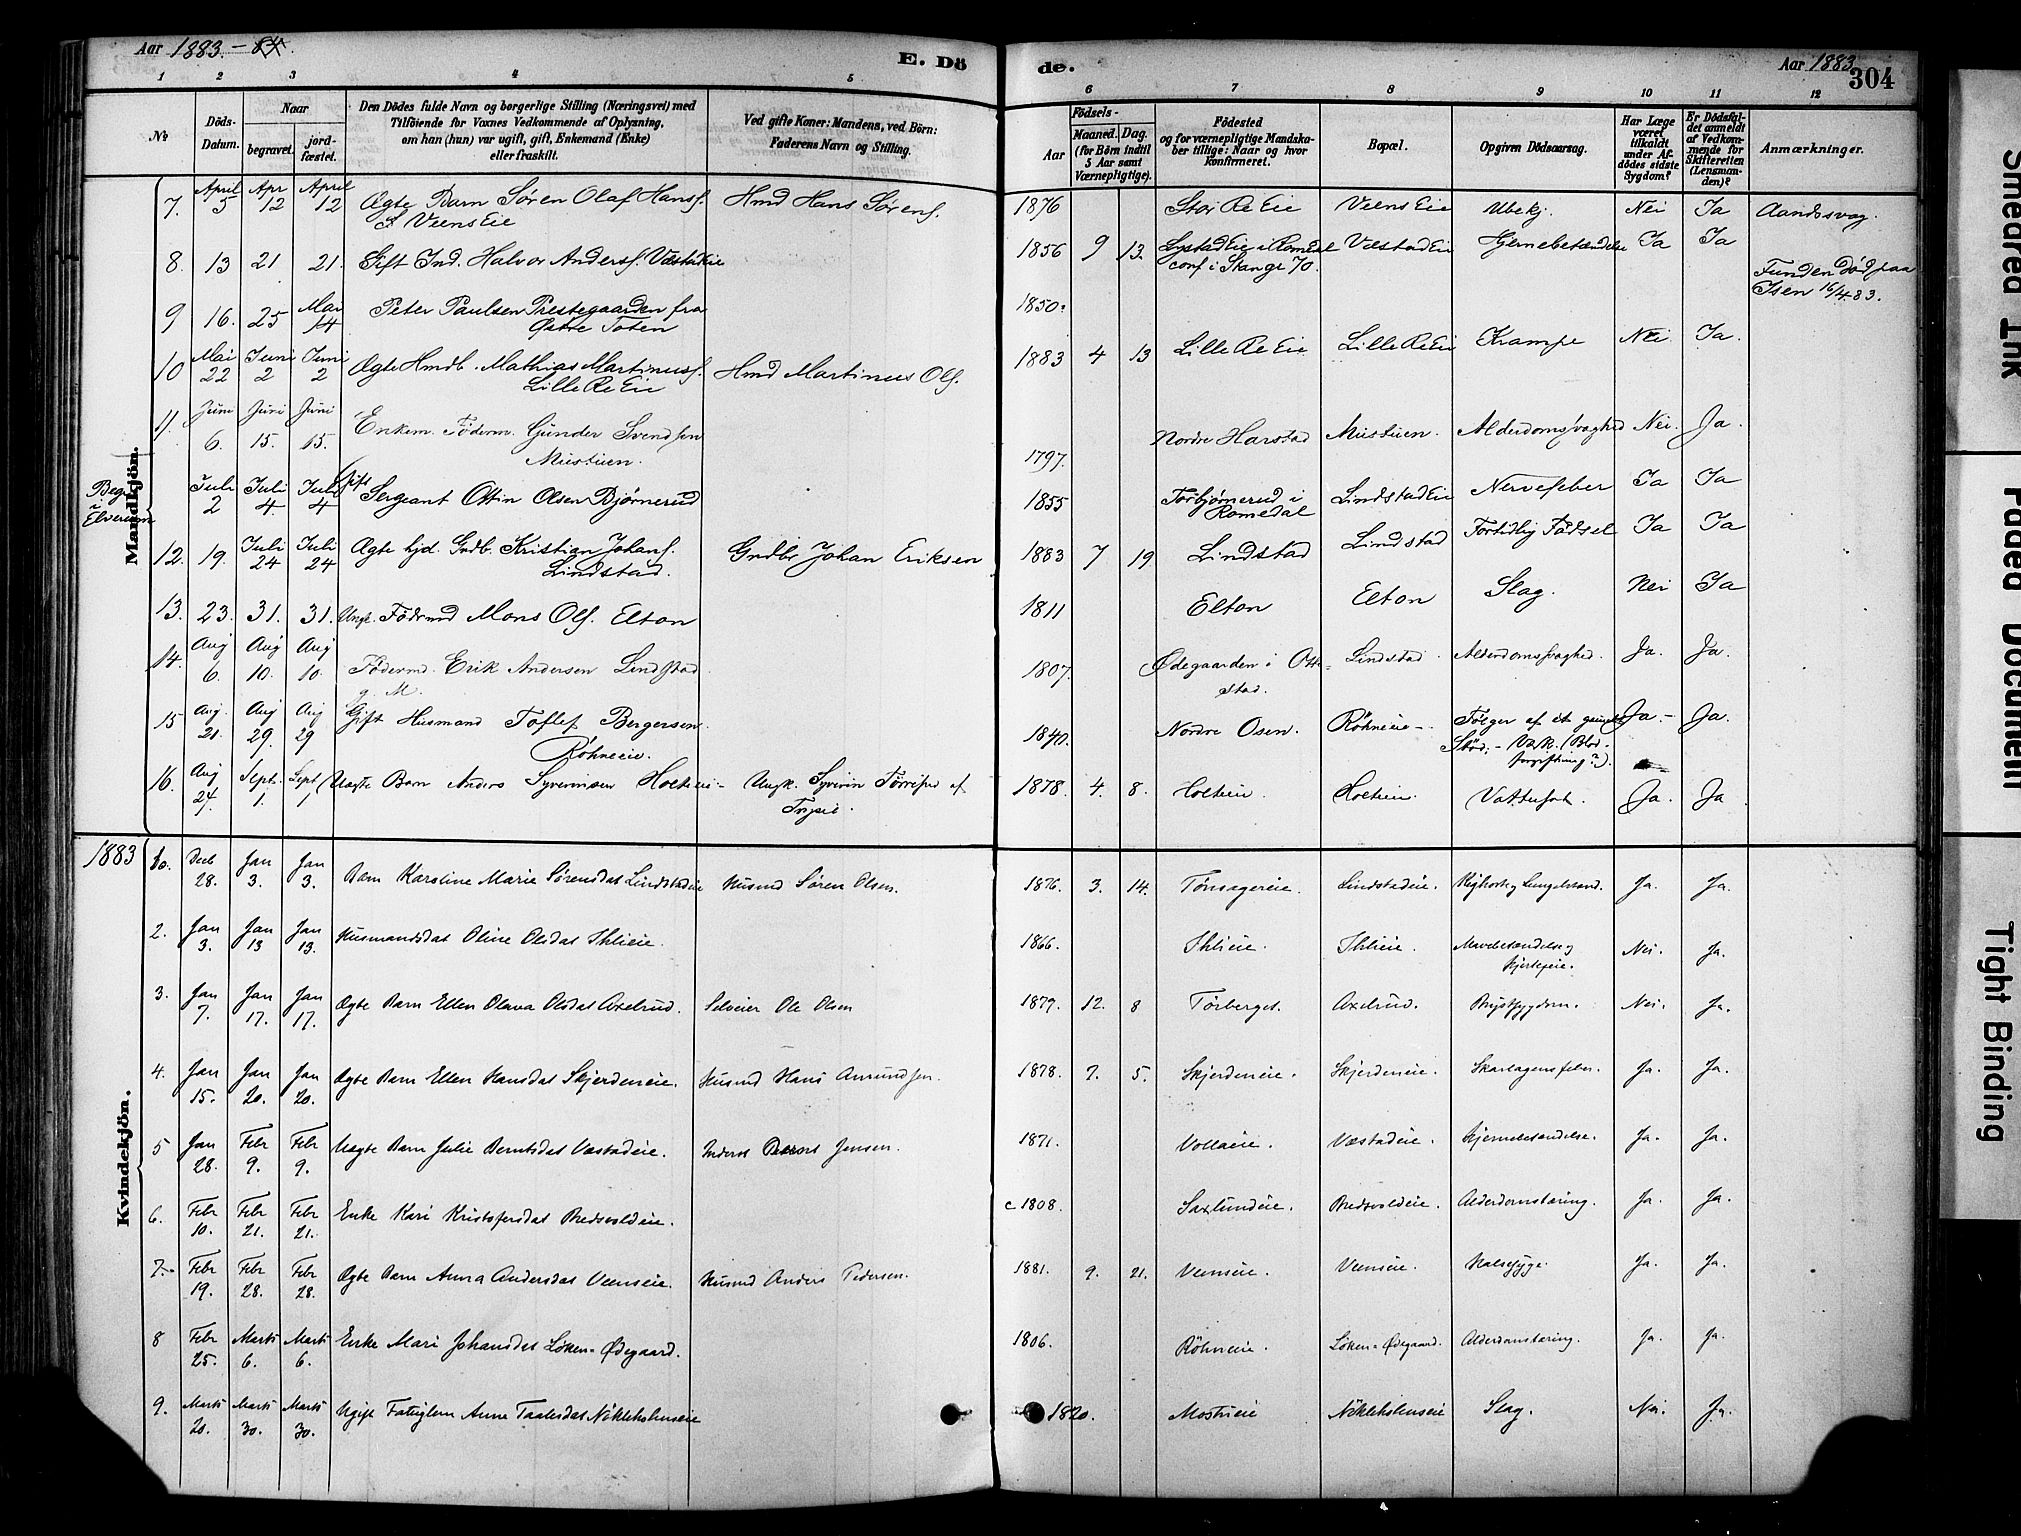 Aar 1883. - 84.
E. Dö
de.
Aar 1883
304
1 2 3 4 5
6 7 8 9 10 11 12
№
Döds-Datum.
Naar
begravet.
jordfæstet.
Den Dödes fulde Navn og borgerlige Stilling (Næringsvei) med
Tilföiende for Voxnes Vedkommende af Oplysning,
om han (hun) var ugift, gift, Enkemand (Enke)
eller fraskilt.
Ved gifte Koner: Mandens, ved Börn:
Faderens Navn og Stilling.
Födsels-
Aar
Maaned. Dag.
(for Börn indtil
5 Aar samt
Værnepligtige).
Födested
og for værnepligtige Mandskaber tillige: Naar og hvor
konfirmeret.
Bopæl.
Opgiven Dödsaarsag.
Har Læge
været
tilkaldt
under Afdödes sidste
Sygdom?
Er Dödsfaldet anmeldt
af Vedkommende for
Skifteretten
(Lensmanden)?
Anmærkninger.
Mandkjön.
7. April 5 Apr 12 April 12 Ægte Barn Søren Olaf Hans. Hmd Hans Sørens. 1876 Stor Re Eie Veens Eie Ubekj. Nei Ja Aandssvag.
S. Veens Eie
8. 13 21 21. Gift Ind. Halvor Anders. Væstad Eie 1856 9 13. Lystad Eie i Romedal Væstad Eie Hjernebetændelse Ja Ja
conf i Stange 70.
Funden død paa
Isen 16/4 83.
9 16. 25 Mai 14 Peter Paulsen Prestegaarden fra 1850.
Østre Toten
10 Mai 22 Juni 2 Juni 2 Ægte Hmdb. Mathias Martinus. Hmd Martinus Ols. 1883 4 13 Lille Re Eie Lille Re Eie Krampe Nei Ja.
Lille Re Eie
11 Juni 6. Juni 15. Juni 15. Enkem. Føderm. Gunder Svendsen 1797. Nordre Harstad Mustuen. Alderdomssvaghed Nei. Ja.
Mustuen.
Begr. i Elverum
Juli 2 Juli 4 Juli 4 Gift Sergeant Ottin Olsen Bjørnerud 1855 Torbjørnerud i Lindstad Eie Nervefeber Ja Ja
Romedal
12. 19. Juli 24 Juli 24 Ægte hjd. Grdb. Kristian Johans. Grdbr Johan Eriksen 1883 7 19 Lindstad Lindstad Fortidlig Fødsel Ja Ja
Lindstad.
13. 23. 31. 31. Ungk. Fødrmd Mons Ols. Elton 1811 Elton Elton Slag. Nei Ja
14. Aug 6. Aug 10. Aug 10. Føderm. Erik Andersen Lindstad 1807. Ødegaarden i Ott- Lindstad. Alderdomssvaghed. Ja. Ja.
g. M. stad.
15 Aug. 21. Aug 29. Aug 29 Gift Husmand Tollef Bergersen 1840. Nordre Osen. Røhneeie - Følger af et Ja. - Ja.
Røhneeie. Stød; - (Blodforgiftning?).
16. Aug 24. Sept. 1. Sept 1 Uægte Barn Anders Syverinsen Holteeie - Ungk. Syverin af 1878. 4. 8. Holteeie. Holteeie. Vattersot. Ja. Ja
1883
Kvindekjön.
Decb 28. Jan 3. Jan 3. Barn Karoline Marie Sørensdat Lindstadeie Husmd Søren Olsen. 1876. 3. 14. Tønsagereie. Lindstadeie. Kighoste Ja. Ja.
2. Jan 3. Jan 13 Jan 13. Husmandsdat Oline Olsdat Ihlieie. 1866. Ihlieie. Ihlieie. Mavebetændelse og Nei. Ja.
Hjertefeie.
3. Jan 7. Jan 17. Jan 17. Ægte Barn Ellen Olava Olsdat Axelrud. Selveier Ole Olsen 1879. 12. 8 Tørberget. Axelrud. Brystsygdom. Nei. Ja.
4. Jan 15. Jan 20. Jan 20. Ægte Barn Ellen Hansdat Skjerdeneie. Husmd Hans Amundsen. 1878. 7. 5. Skjerdeneie. Skjerdeneie. Skarlagensfeber. Ja. Ja.
5 Jan 28. Febr 9. Febr 9. Uægte Barn Julie Berntsdat Væstadeie. Inderst Bernt Jensen. 1871. Vollaeie. Væstadeie. Hjernebetændelse. Ja. Ja.
6. Febr 10. Febr 21. Febr 21. Enke Kari Kristofersdat Bredvoldeie. c. 1808. Saxlundeie. Bredvoldeie. Alderdomstæring. Ja. Ja.
7. Febr 19. Febr 28. Febr 28. Ægte Barn Anna Andersdat Veenseie. Husmd Anders Pedersen. 1881. 9. 21. Veenseie. Veenseie. Halssyge. Ja. Ja.
8 Febr 25. Marts 6. Marts 6. Enke Mari Johansdat Løken-Ødegaard. 1806. Røhneeie. Løken-Ødegaard. Alderdomstæring. Ja. Ja.
9. Marts 20. Marts 30. Marts 30. Ugift Fattiglem Anne Taalesdat Nökleholmseie 1820. Mostueie Nökleholmseie Slag. Nei. Ja.
Smeared Ink
Faded Document
Tight Binding